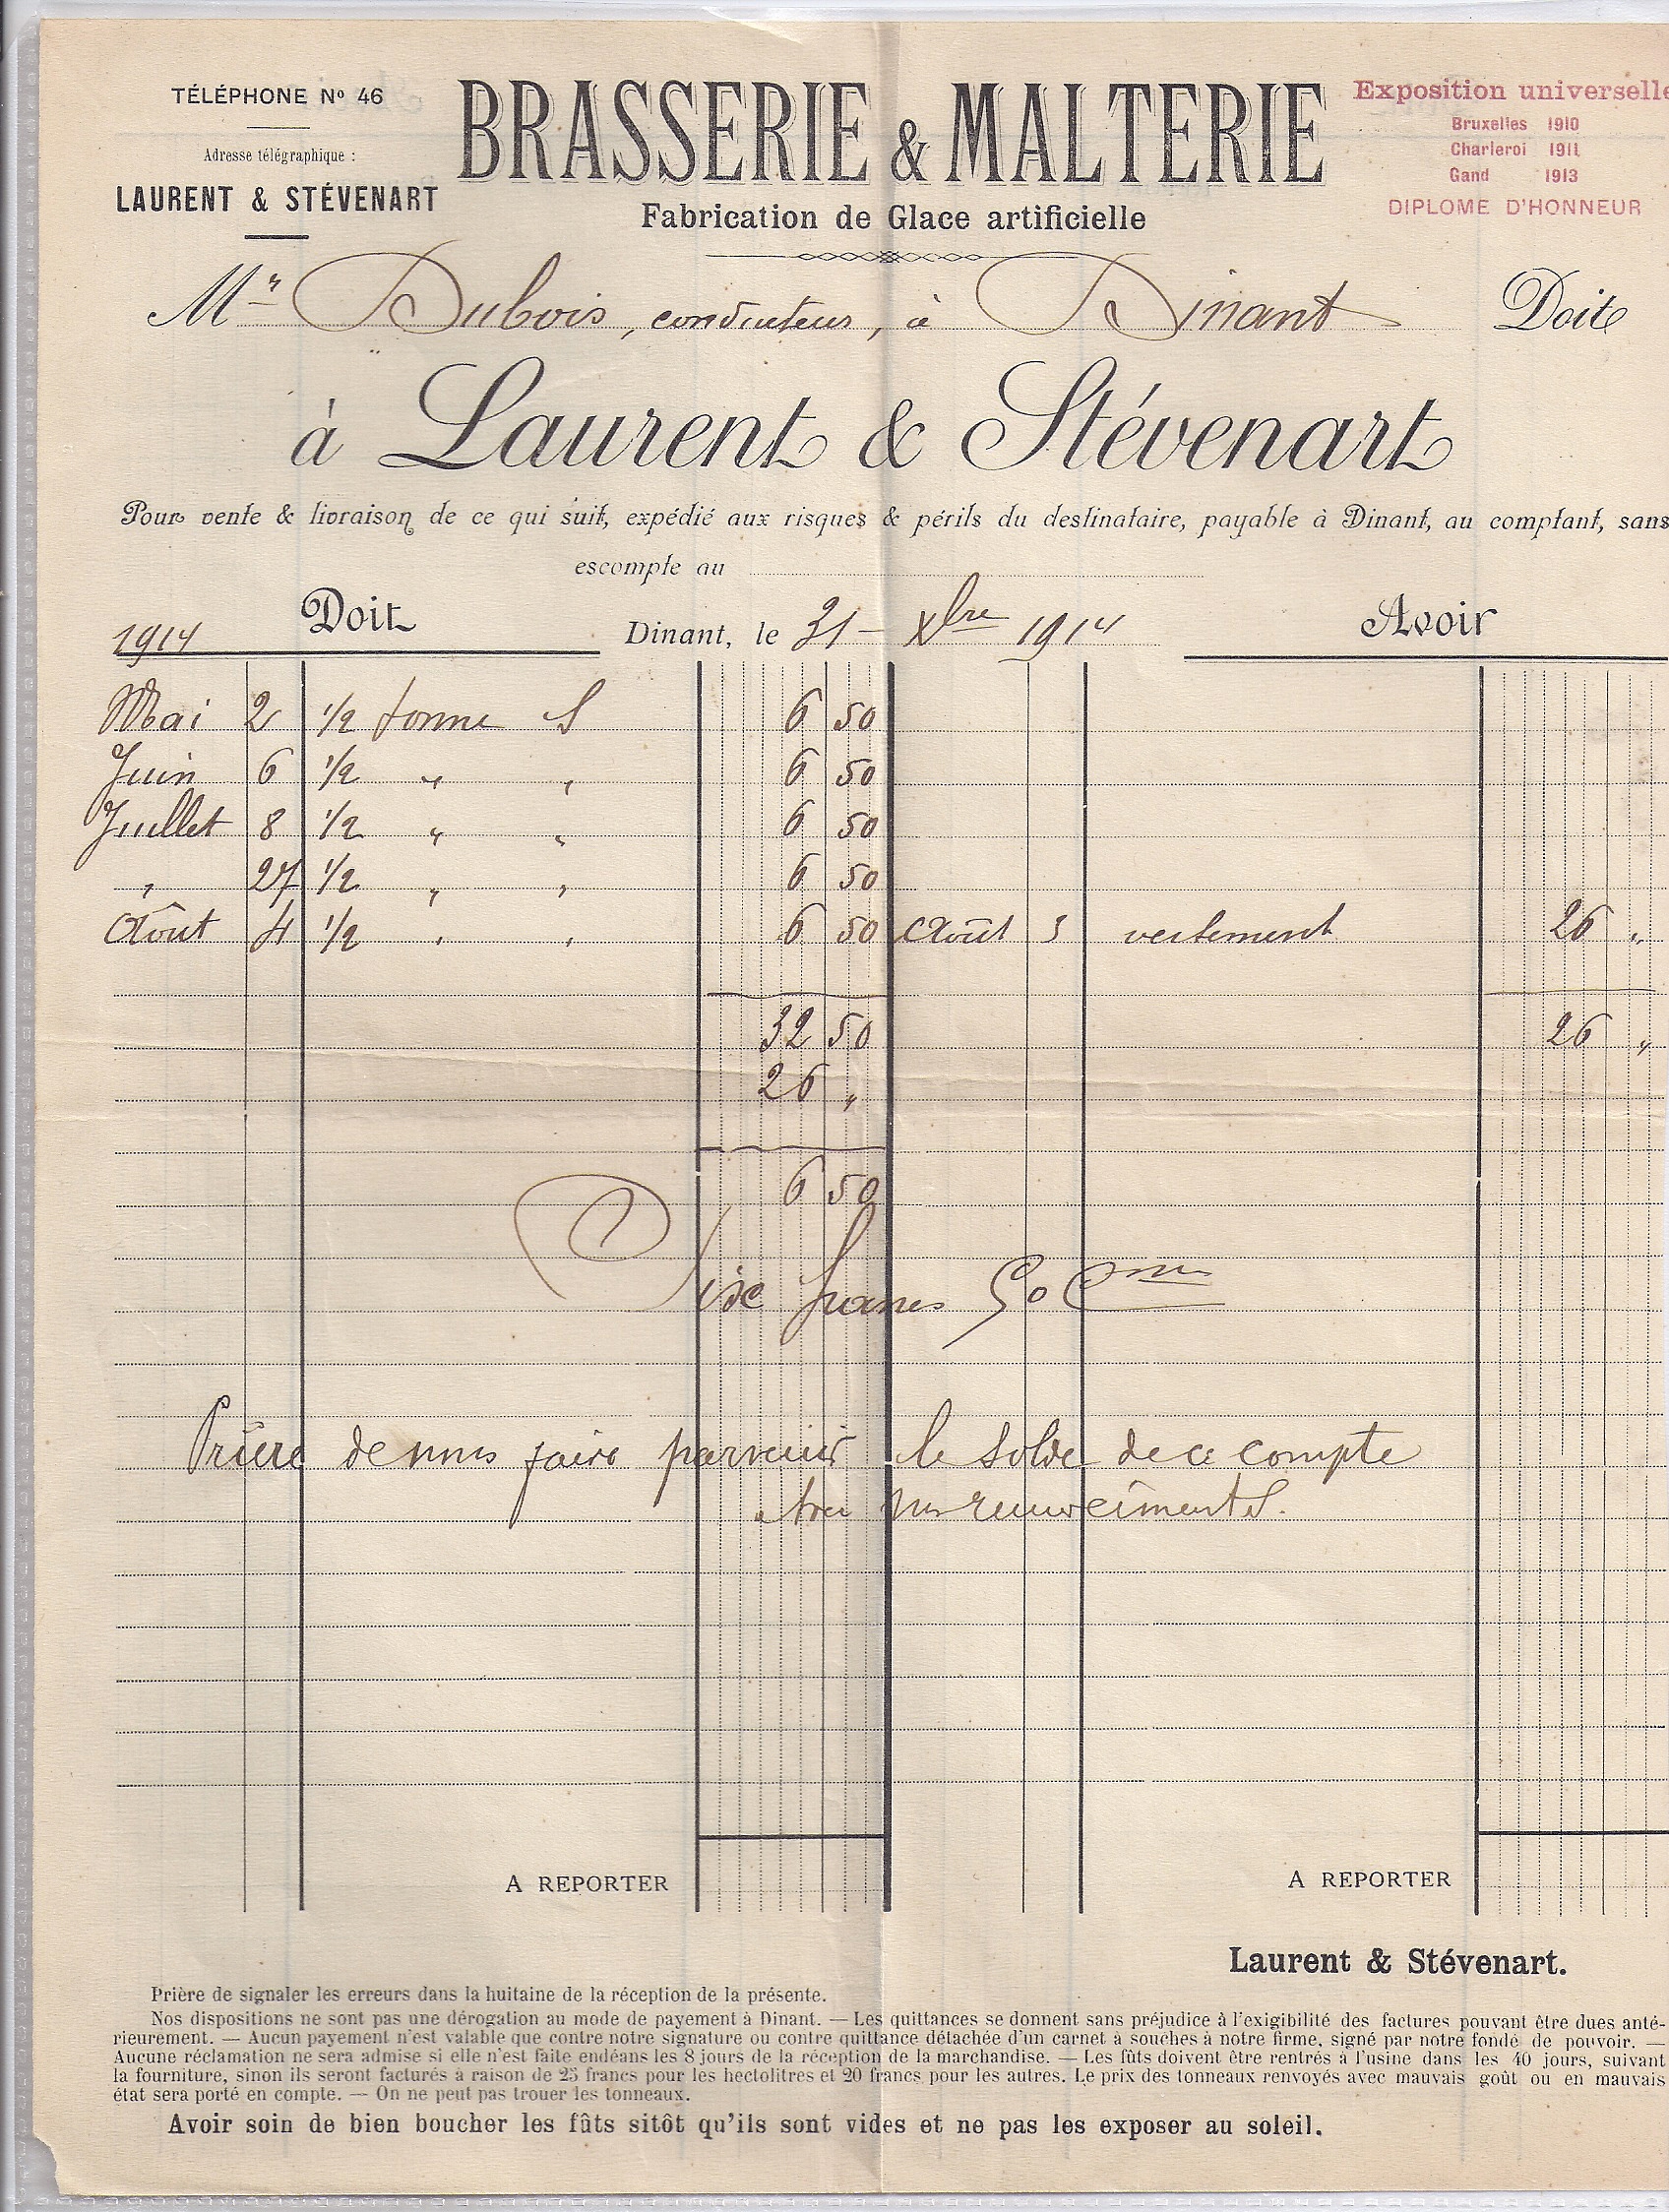 TÉLÉPHONE Nº 46
Adresse télégraphique :
LAURENT & STÉVENART
BRASSERIE & MALTERIE
Fabrication de Glace artificielle
Exposition universelle
Bruxelles 1910
Charleroi 1911
Gand 1913
DIPLOME D'HONNEUR
Mr Dubois, conducteur, à Dinant Doit
à Laurent & Stévenart
Pour vente & livraison de ce qui suit, expédié aux risques & périls du destinataire, payable à Dinant, au comptant, sans
escompte au
1914 Doit Dinant, le 31 - Xbre 1914 Avoir
Mai 2 1/2 tonne S 6 50
Juin 6 1/2 " " 6 50
Juillet 8 1/2 " " 6 50
" 27 1/2 " " 6 50
Août 4 1/2 " " 6 50 Août 3 versement 26 "
32 50 26 "
26 "
6 50
Six francs 50 Cmes
Prière de nous faire parvenir le solde de ce compte
Avec nos remerciments.
A REPORTER A REPORTER
Laurent & Stévenart.
Prière de signaler les erreurs dans la huitaine de la réception de la présente.
Nos dispositions ne sont pas une dérogation au mode de payement à Dinant. — Les quittances se donnent sans préjudice à l'exigibilité des factures pouvant être dues anté-
rieurement. — Aucun payement n'est valable que contre notre signature ou contre quittance détachée d'un carnet à souches à notre firme, signé par notre fondé de pouvoir. —
Aucune réclamation ne sera admise si elle n'est faite endéans les 8 jours de la réception de la marchandise. — Les fûts doivent être rentrés à l'usine dans les 40 jours, suivant
la fourniture, sinon ils seront facturés à raison de 25 francs pour les hectolitres et 20 francs pour les autres. Le prix des tonneaux renvoyés avec mauvais goût ou en mauvais
état sera porté en compte. — On ne peut pas trouer les tonneaux.
Avoir soin de bien boucher les fûts sitôt qu'ils sont vides et ne pas les exposer au soleil.